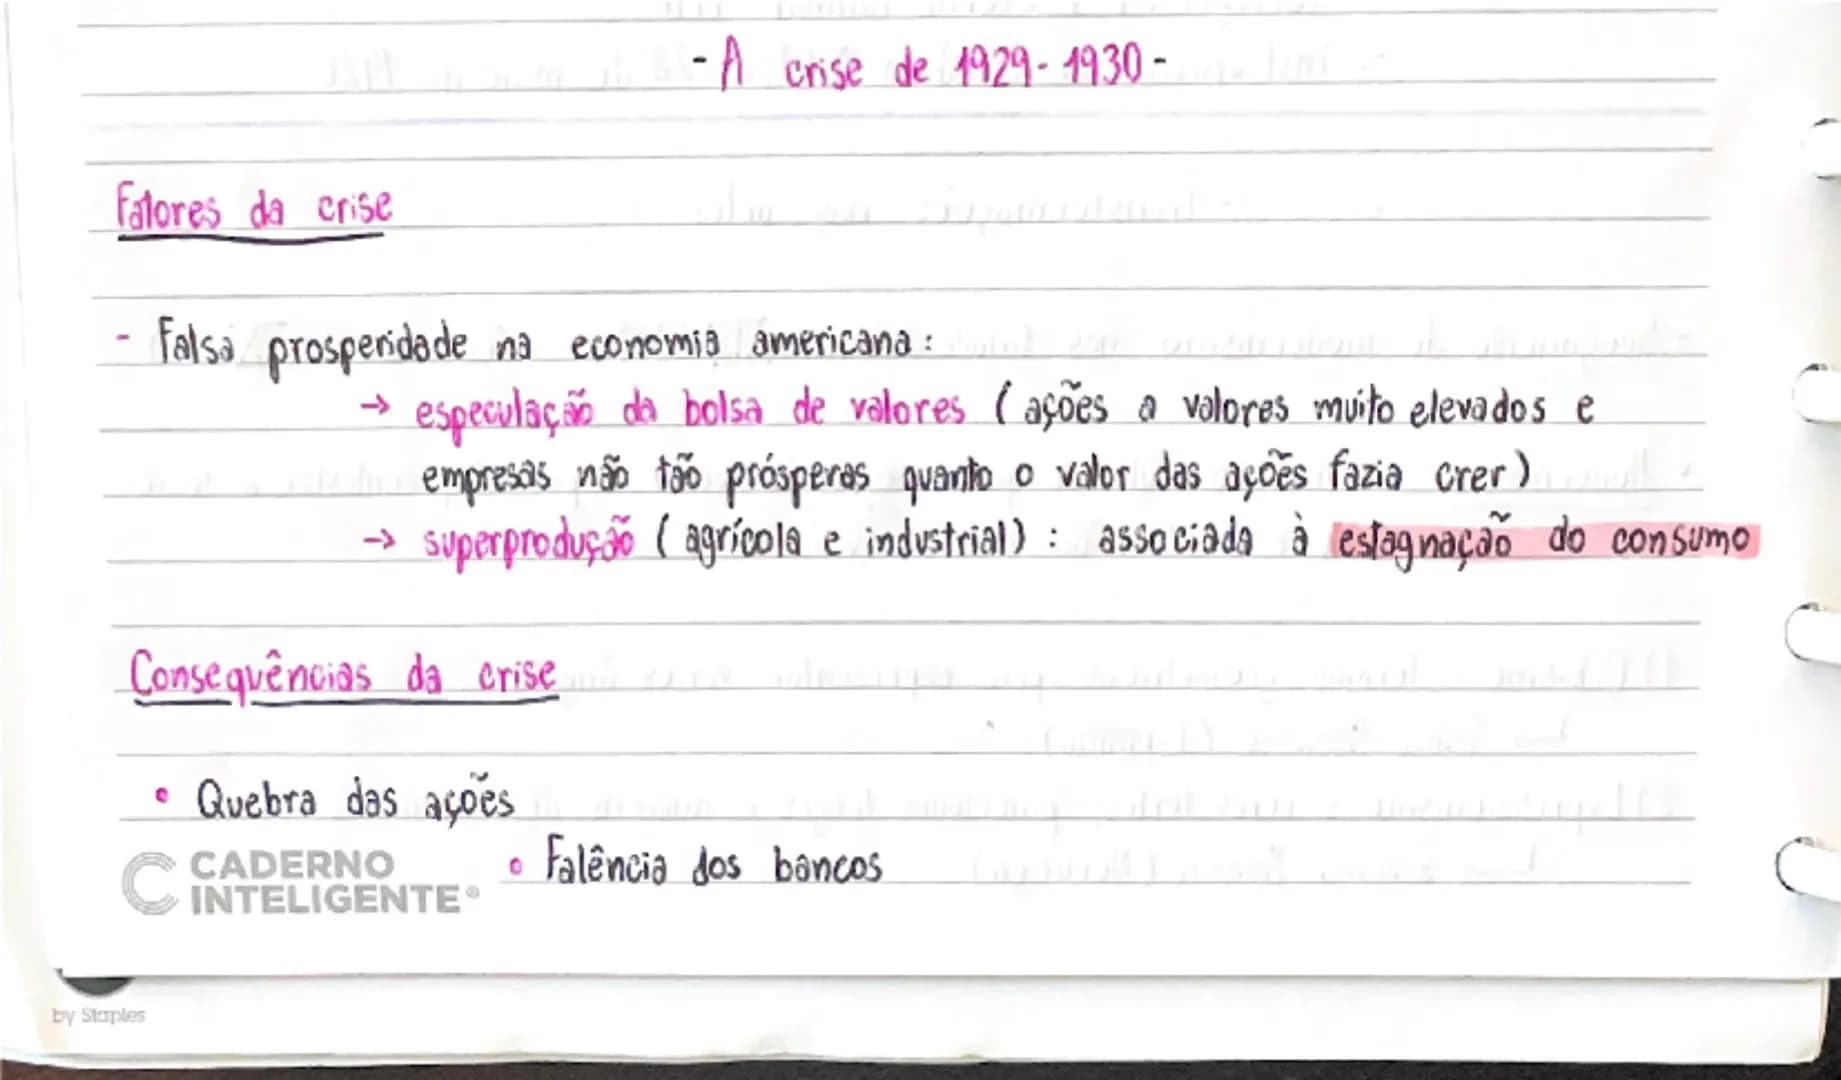 - A crise de 1929-1930 -
Fatores da crise
- Falsa prosperidade na economia americana:
→ especulação da bolsa de valores (ações a valores muito elevados e
empresas não tão prósperas quanto o valor das ações fazia crer)
→ superprodução (agrícola e industrial): associada à estagnação do consumo
Consequências da crise
• Quebra das ações
• Falência dos bancos
CADERNO
INTELIGENTE®
by Staples